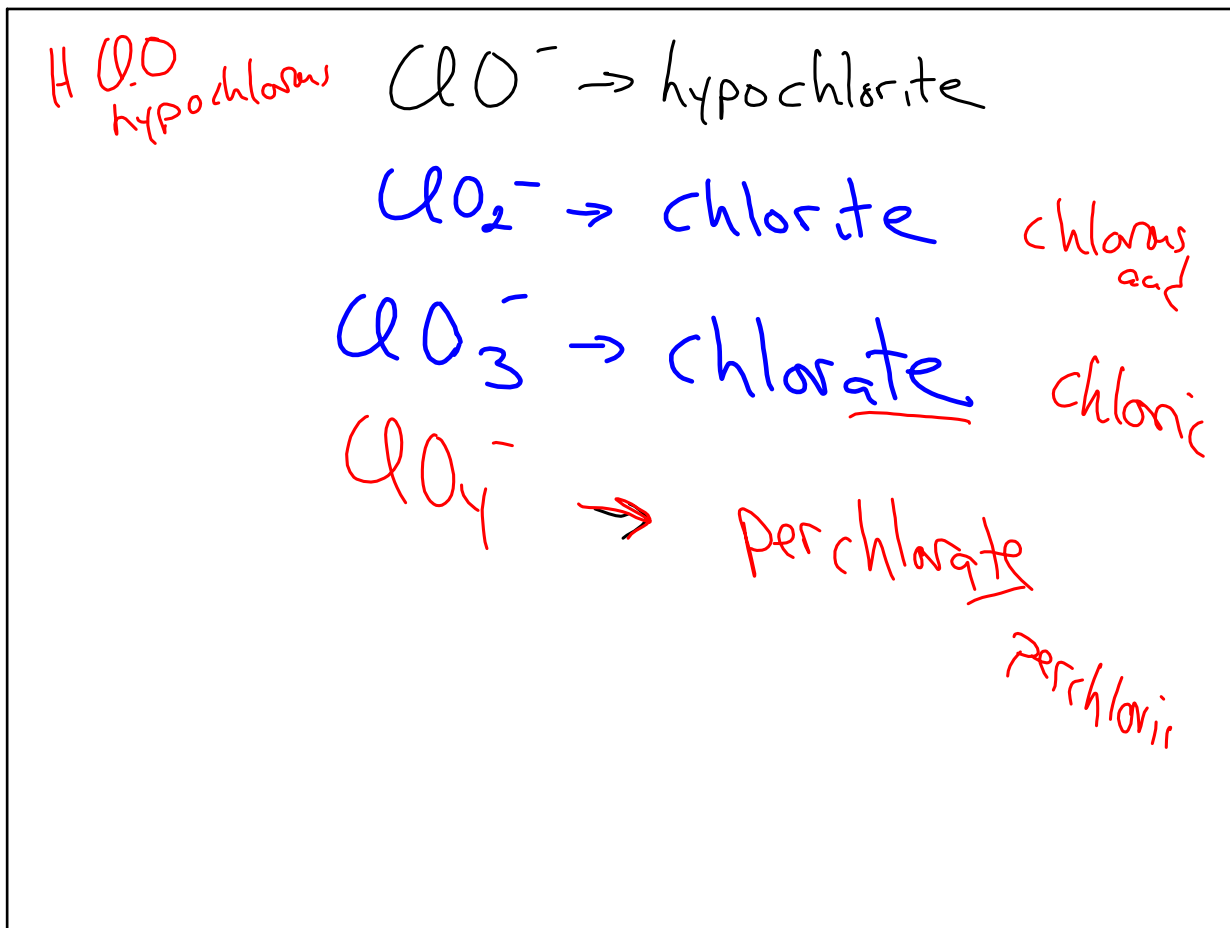 HClO ClO⁻ → hypochlorite
hypochlorous
ClO₂⁻ → chlorite
chlorous
acid
ClO₃⁻ → chlorate
chloric
ClO₄⁻ → perchlorate
perchloric